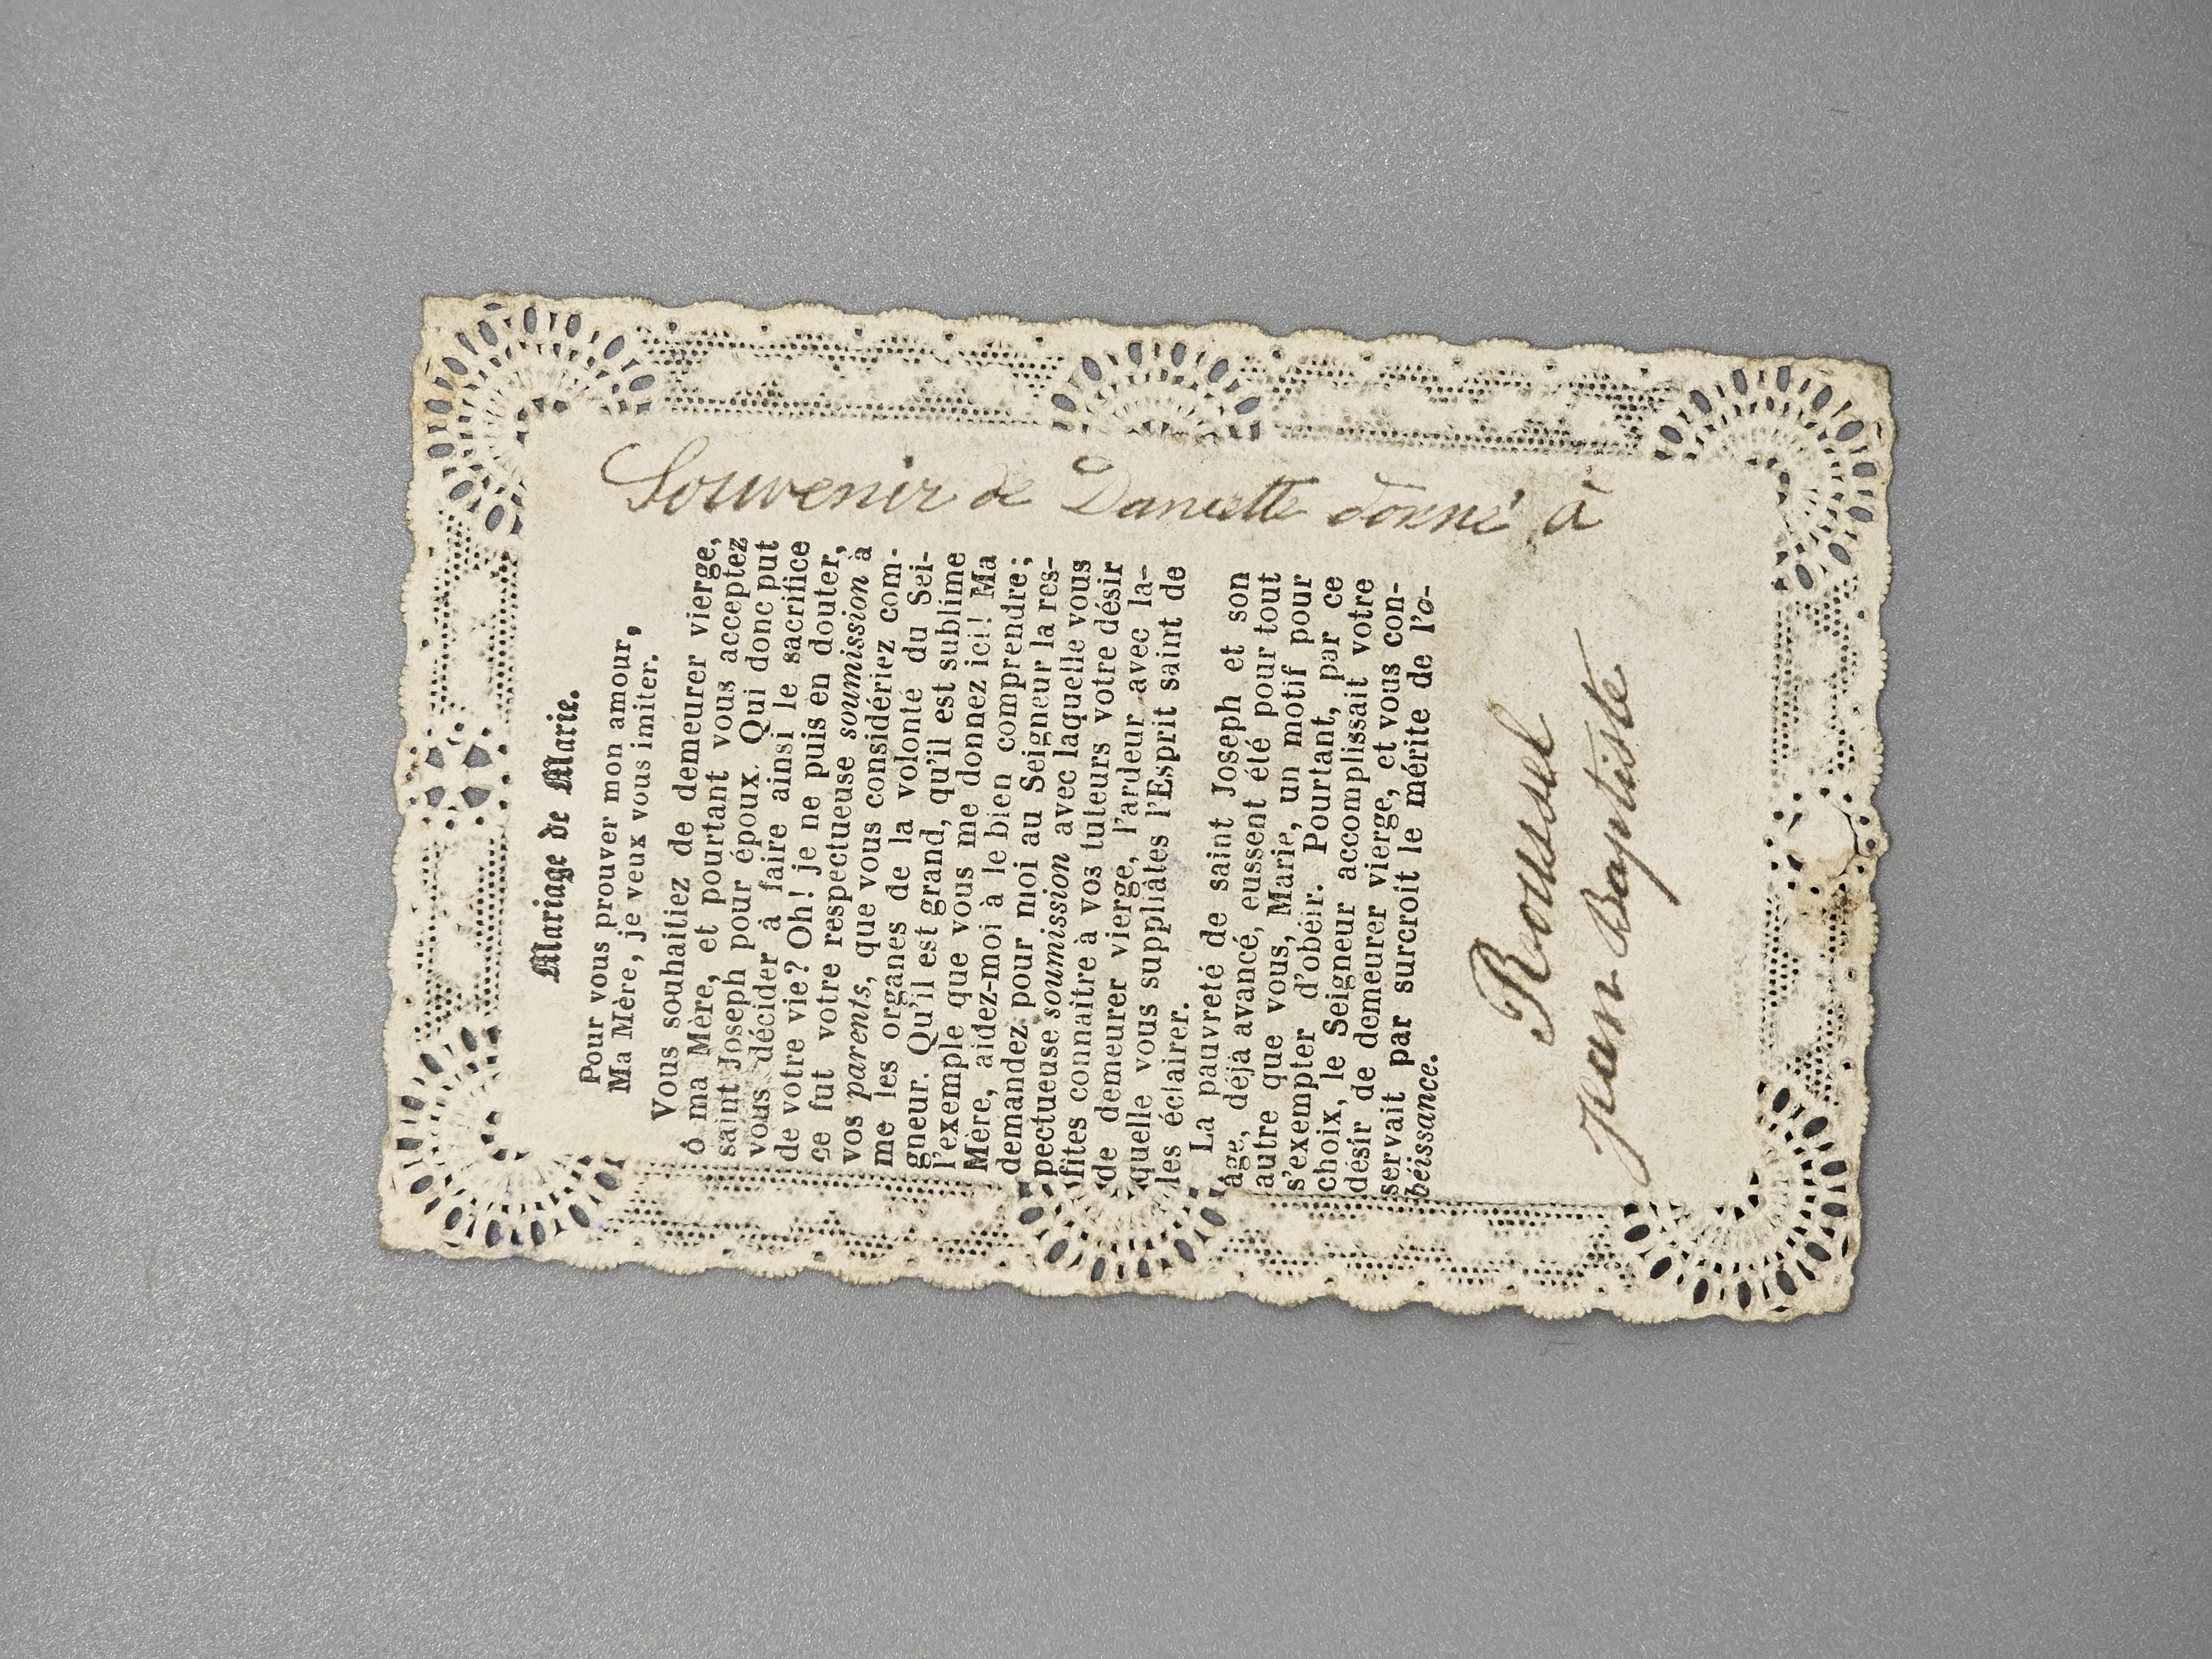 Mariage de Marie.
Pour vous prouver mon amour,
Ma Mère, je veux vous imiter.
Vous souhaitiez de demeurer vierge,
ô ma Mère, et pourtant vous acceptez
saint Joseph pour époux. Qui donc put
vous décider à faire ainsi le sacrifice
de votre vie? Oh! je ne puis en douter,
ce fut votre respectueuse soumission à
vos parents, que vous considériez com-
me les organes de la volonté du Sei-
gneur. Qu'il est grand, qu'il est sublime
l'exemple que vous me donnez ici! Ma
Mère, aidez-moi à le bien comprendre;
demandez pour moi au Seigneur la res-
pectueuse soumission avec laquelle vous
fîtes connaître à vos tuteurs votre désir
de demeurer vierge, l'ardeur avec la-
quelle vous suppliâtes l'Esprit saint de
les éclairer.
La pauvreté de saint Joseph et son
âge, déjà avancé, eussent été pour tout
autre que vous, Marie, un motif pour
s'exempter d'obéir. Pourtant, par ce
choix, le Seigneur accomplissait votre
désir de demeurer vierge, et vous con-
servait par surcroit le mérite de l'o-
béissance.
Souvenir de donné à
Roussel
Jean Baptiste